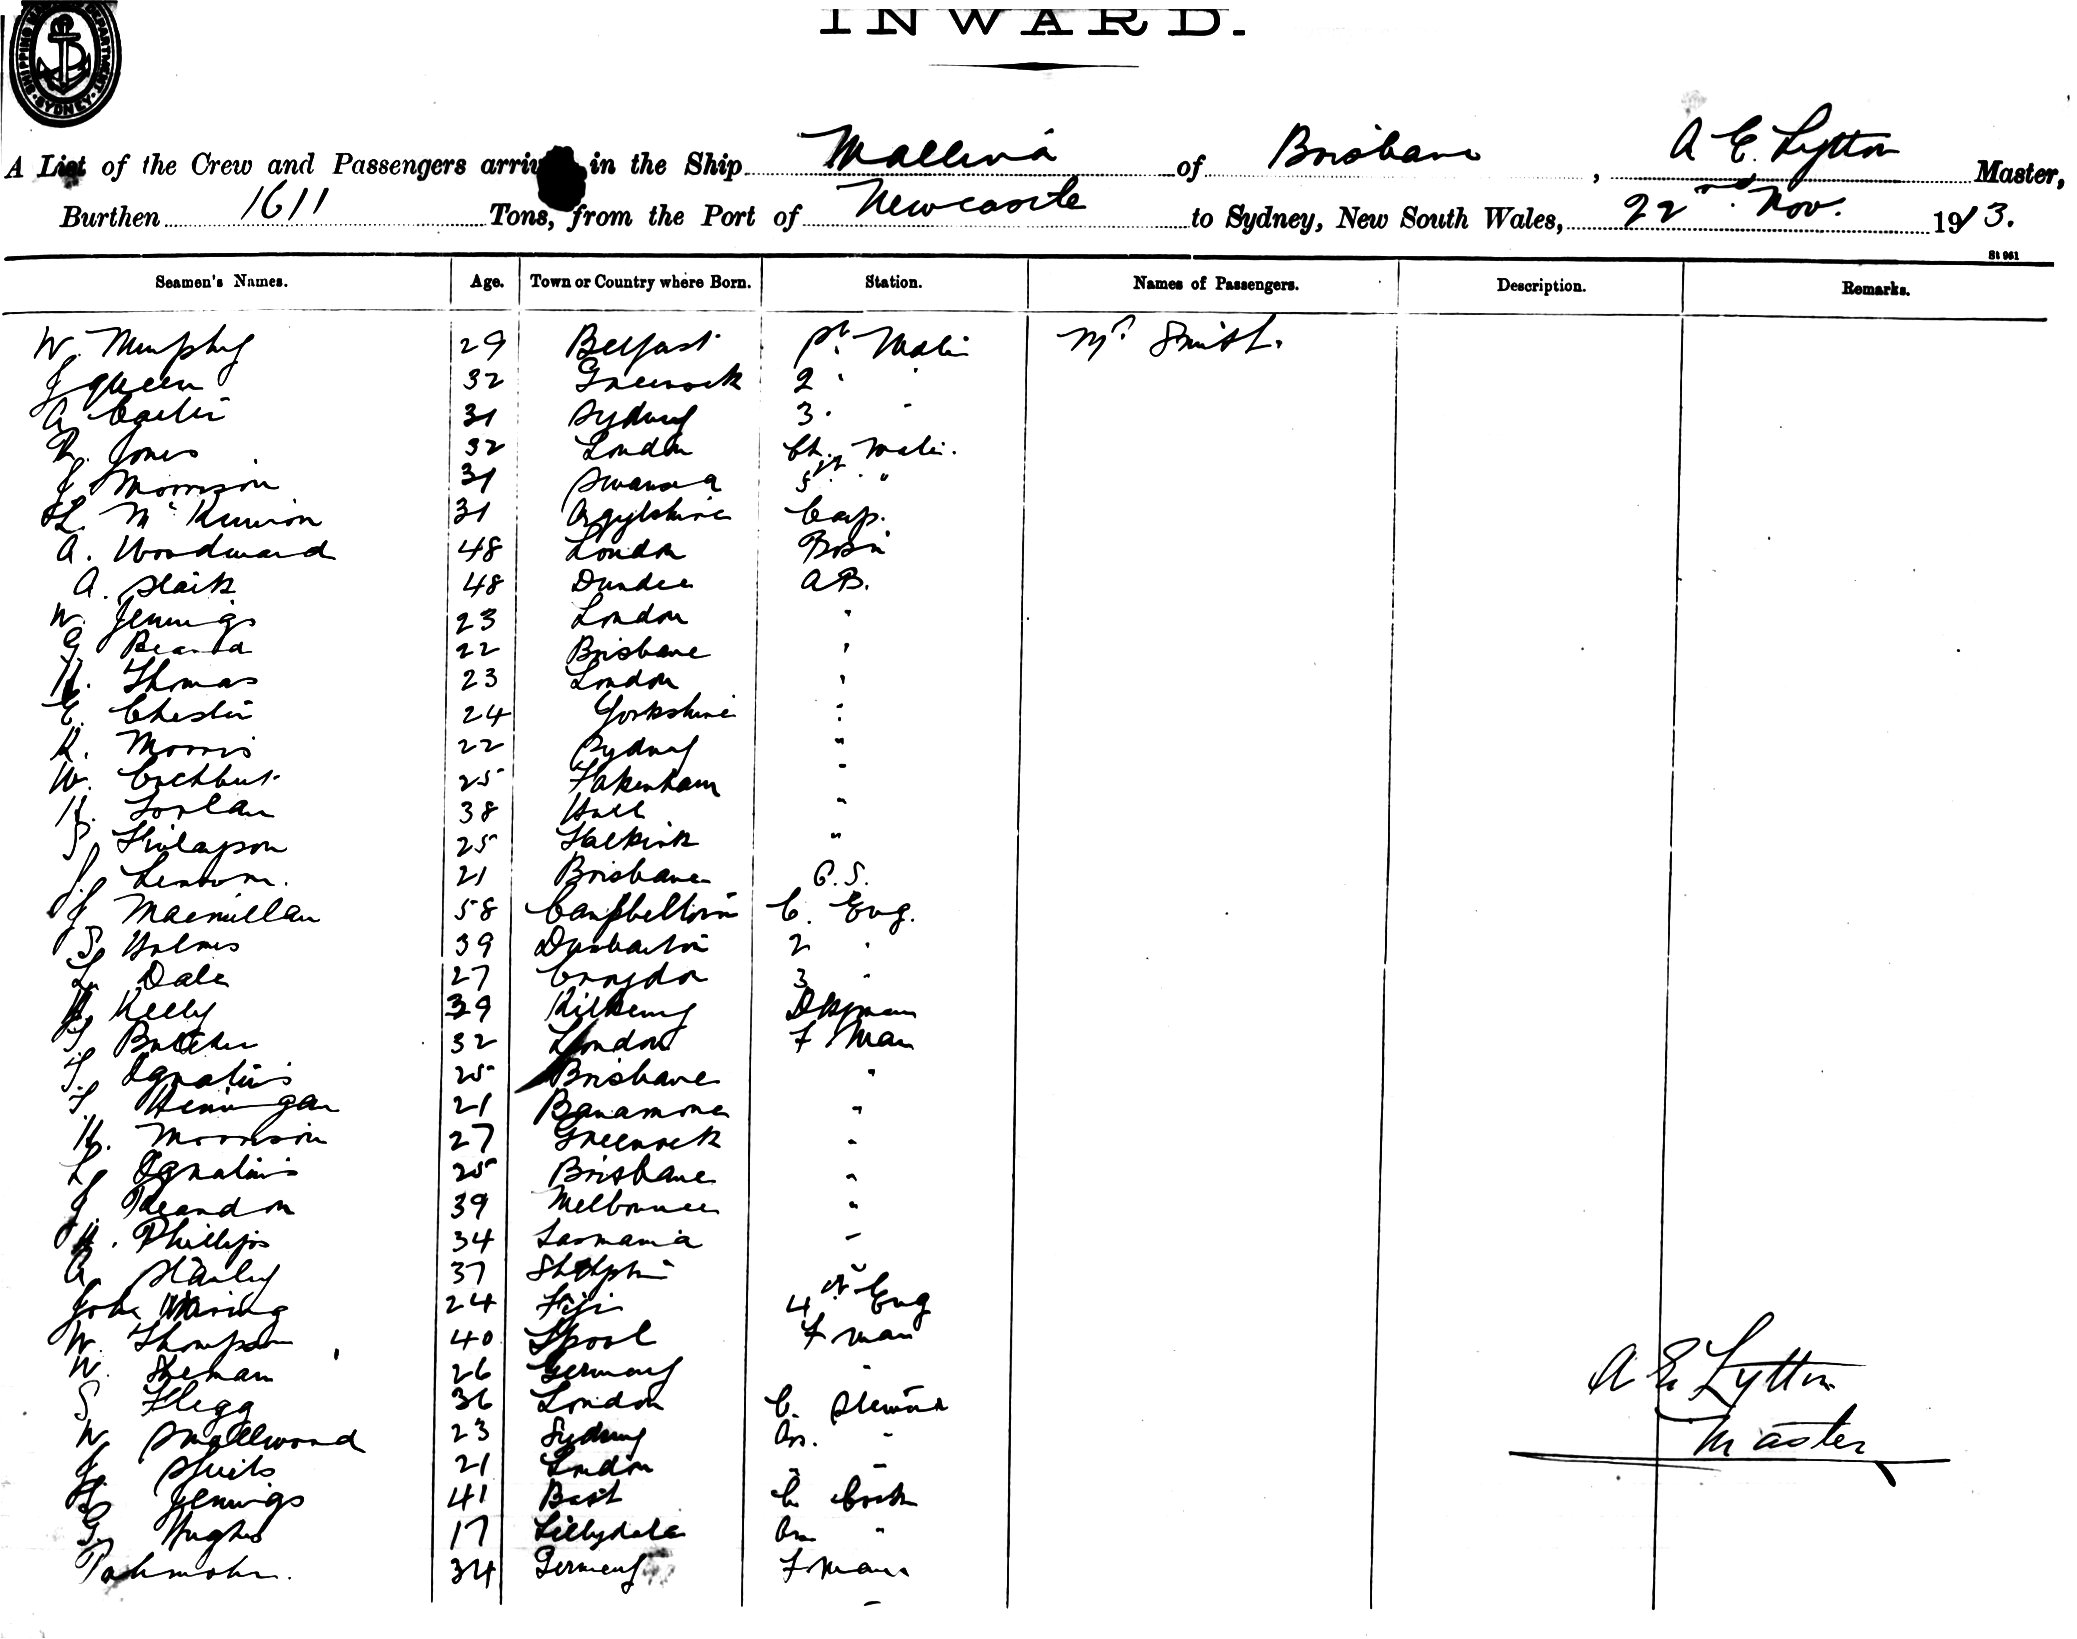 INWARD.
SHIPPING DEPARTMENT SYDNEY
A List of the Crew and Passengers in the Ship Mallina of Brisbane, A E. Lytton Master,
Burthen 1611 Tons, from the Port of Newcastle to Sydney, New South Wales, 22nd Nov. 1913.
St 961
Seamen's Names. Age. Town or Country where Born. Station. Names of Passengers. Description. Remarks.
W. Murphy 29 Belfast Mate Mr Smith.
J Queen 32 Greenock 2 "
A 31 Sydney 3. "
R. Jones 32 London Ch. Mate.
J Morrison 31 Swansea "
Mc Kinnon 31 Argyleshire Carp.
A. Woodward 48 London Bosn
A. 48 Dundee AB.
W. Jennings 23 London "
G 22 Brisbane "
H. Thomas 23 London "
C. Chester 24 Yorkshire "
R. Morris 22 Sydney "
W. 25 Fakenham "
H. 38 Hull "
Finlayson 25 Falkirk "
J 21 Brisbane O.S.
J Macmillan 58 Campbeltown C. Eng.
S Holmes 39 Dumbarton 2 "
L Dale 27 Croydon 3 "
Kelly 39 Kilkenny Dkyman
Butcher 32 London F Man
Ignatius 25 Brisbane "
Hennigan 21 "
H. Morrison 27 Greenock "
L Ignatius 25 Brisbane "
J Reardon 39 Melbourne "
H. Phillips 34 Tasmania "
A Stanley 37
John Waring 24 Fiji 4th Eng
W. Thompson 40 Lpool F man
W. 26 Germany "
S Flegg 36 London C. Steward
W. Smallwood 23 Sydney As. "
J 21 London " "
Jennings 41 C Cook
G Hughes 17 Lillydale As "
34 Germany F man
A E Lytton
Master